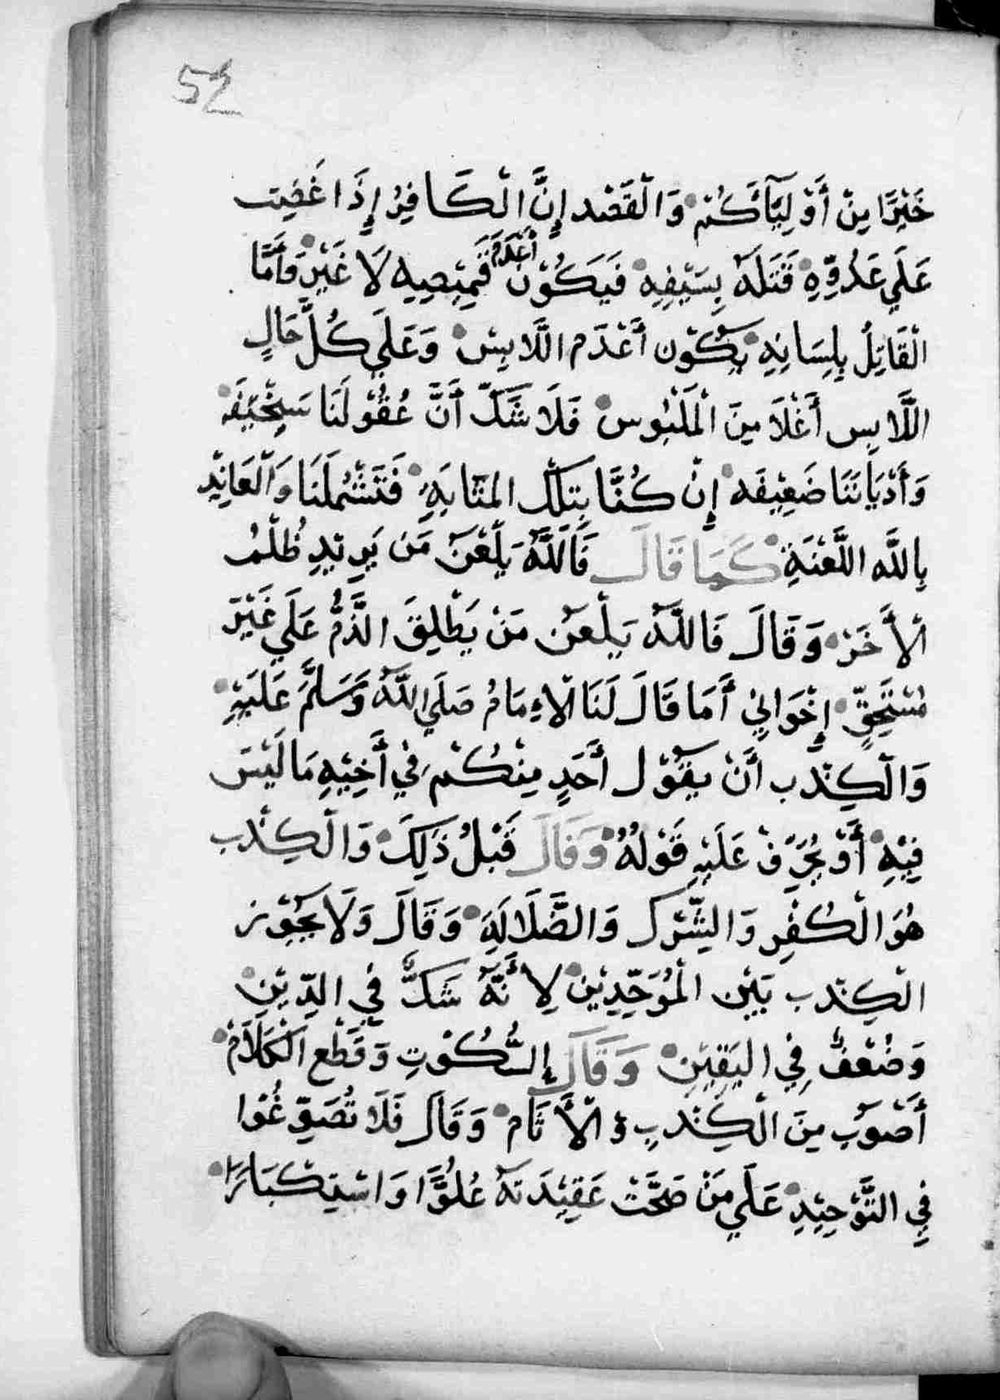 52
خَيْرًا مِنْ أَوْلِيَآئَكُمْ وَالْقَصْد إِنَّ الْكَافِرُ إِذَا غَضِبَ
عَلَي عَدُوِّهِ قَتَلَهُ بِسَيْفِهِ فَيَكُوْن أَعْدَمَ قَمِيْصِهِ لَا غَيْر وَأَمَّا
الْقَاتِلُ بِلِسَانِهِ يَكُوْن أَعْدَم اللَّابِسْ وَعَلَي كُلِّ حَالٍ
اللَّابِس أَغْلَا مِنَ الْمَلْبُوس فَلَا شَكّ أَنَّ عُقُوْلَنَا سَخِيْفَه
وَأَدْيَانَنَا ضَعِيْفَه إِنْ كُنَّا بِتِلْكَ المَثَابَةِ فَتَشْمُلَنَا وَالْعَائِذِ
بِاللَّهِ اللَّعْنَةِ كَمَا قَالَ فَاللَّهُ يَلْعَنَ مَن يَرِيْدِ ظُلْمُ
الأَخَرْ وَقَالَ فَاللَّهُ يَلْعَن مَنْ يَطْلِقَ الذَّمُّ عَلَي غَيْرِ
مُسْتَحِقٍّ إِخْوَانِيْ أَمَا قَالَ لَنَا الْإِمَامُ صَلَي اللَّهُ وَسَلَّمَ عَلَيْهِ
وَالْكِذْب أَنْ يَقُوْل أَحَدٍ مِنْكُمْ فِيْ أَخِيْهِ مَا لَيْسَ
فِيْهِ أَوْ يُحَرِّفْ عَلَيْهِ قَوْلُهُ وَقَالَ قَبْلُ ذَلِكَ وَالْكِذْب
هُوَ الْكُفْرِ وَالشِّرْك وَالضَّلَالَهَ وَقَالَ وَلَا يَجُوْز
الْكِذْب بَيْن الْمُوَحِّدِيْنَ لِأَنَّهُ شَكٌّ فِي الدِّيْنِ
وَضُعْفٌ فِي الْيَقِيْنِ وَقَالَ السُّكُوْتِ وَقَطْع الْكَلَامْ
أَصْوَب مِنَ الْكِذْبِ وَ الْأَثَام وَقَالَ فَلَا تُصَوِّغُوْا
فِي التَّوْحِيْدِ عَلَي مَنْ صَحَّتْ عَقِيْدَتَهُ عُلُوًّا وَاسْتِكْبَارًا